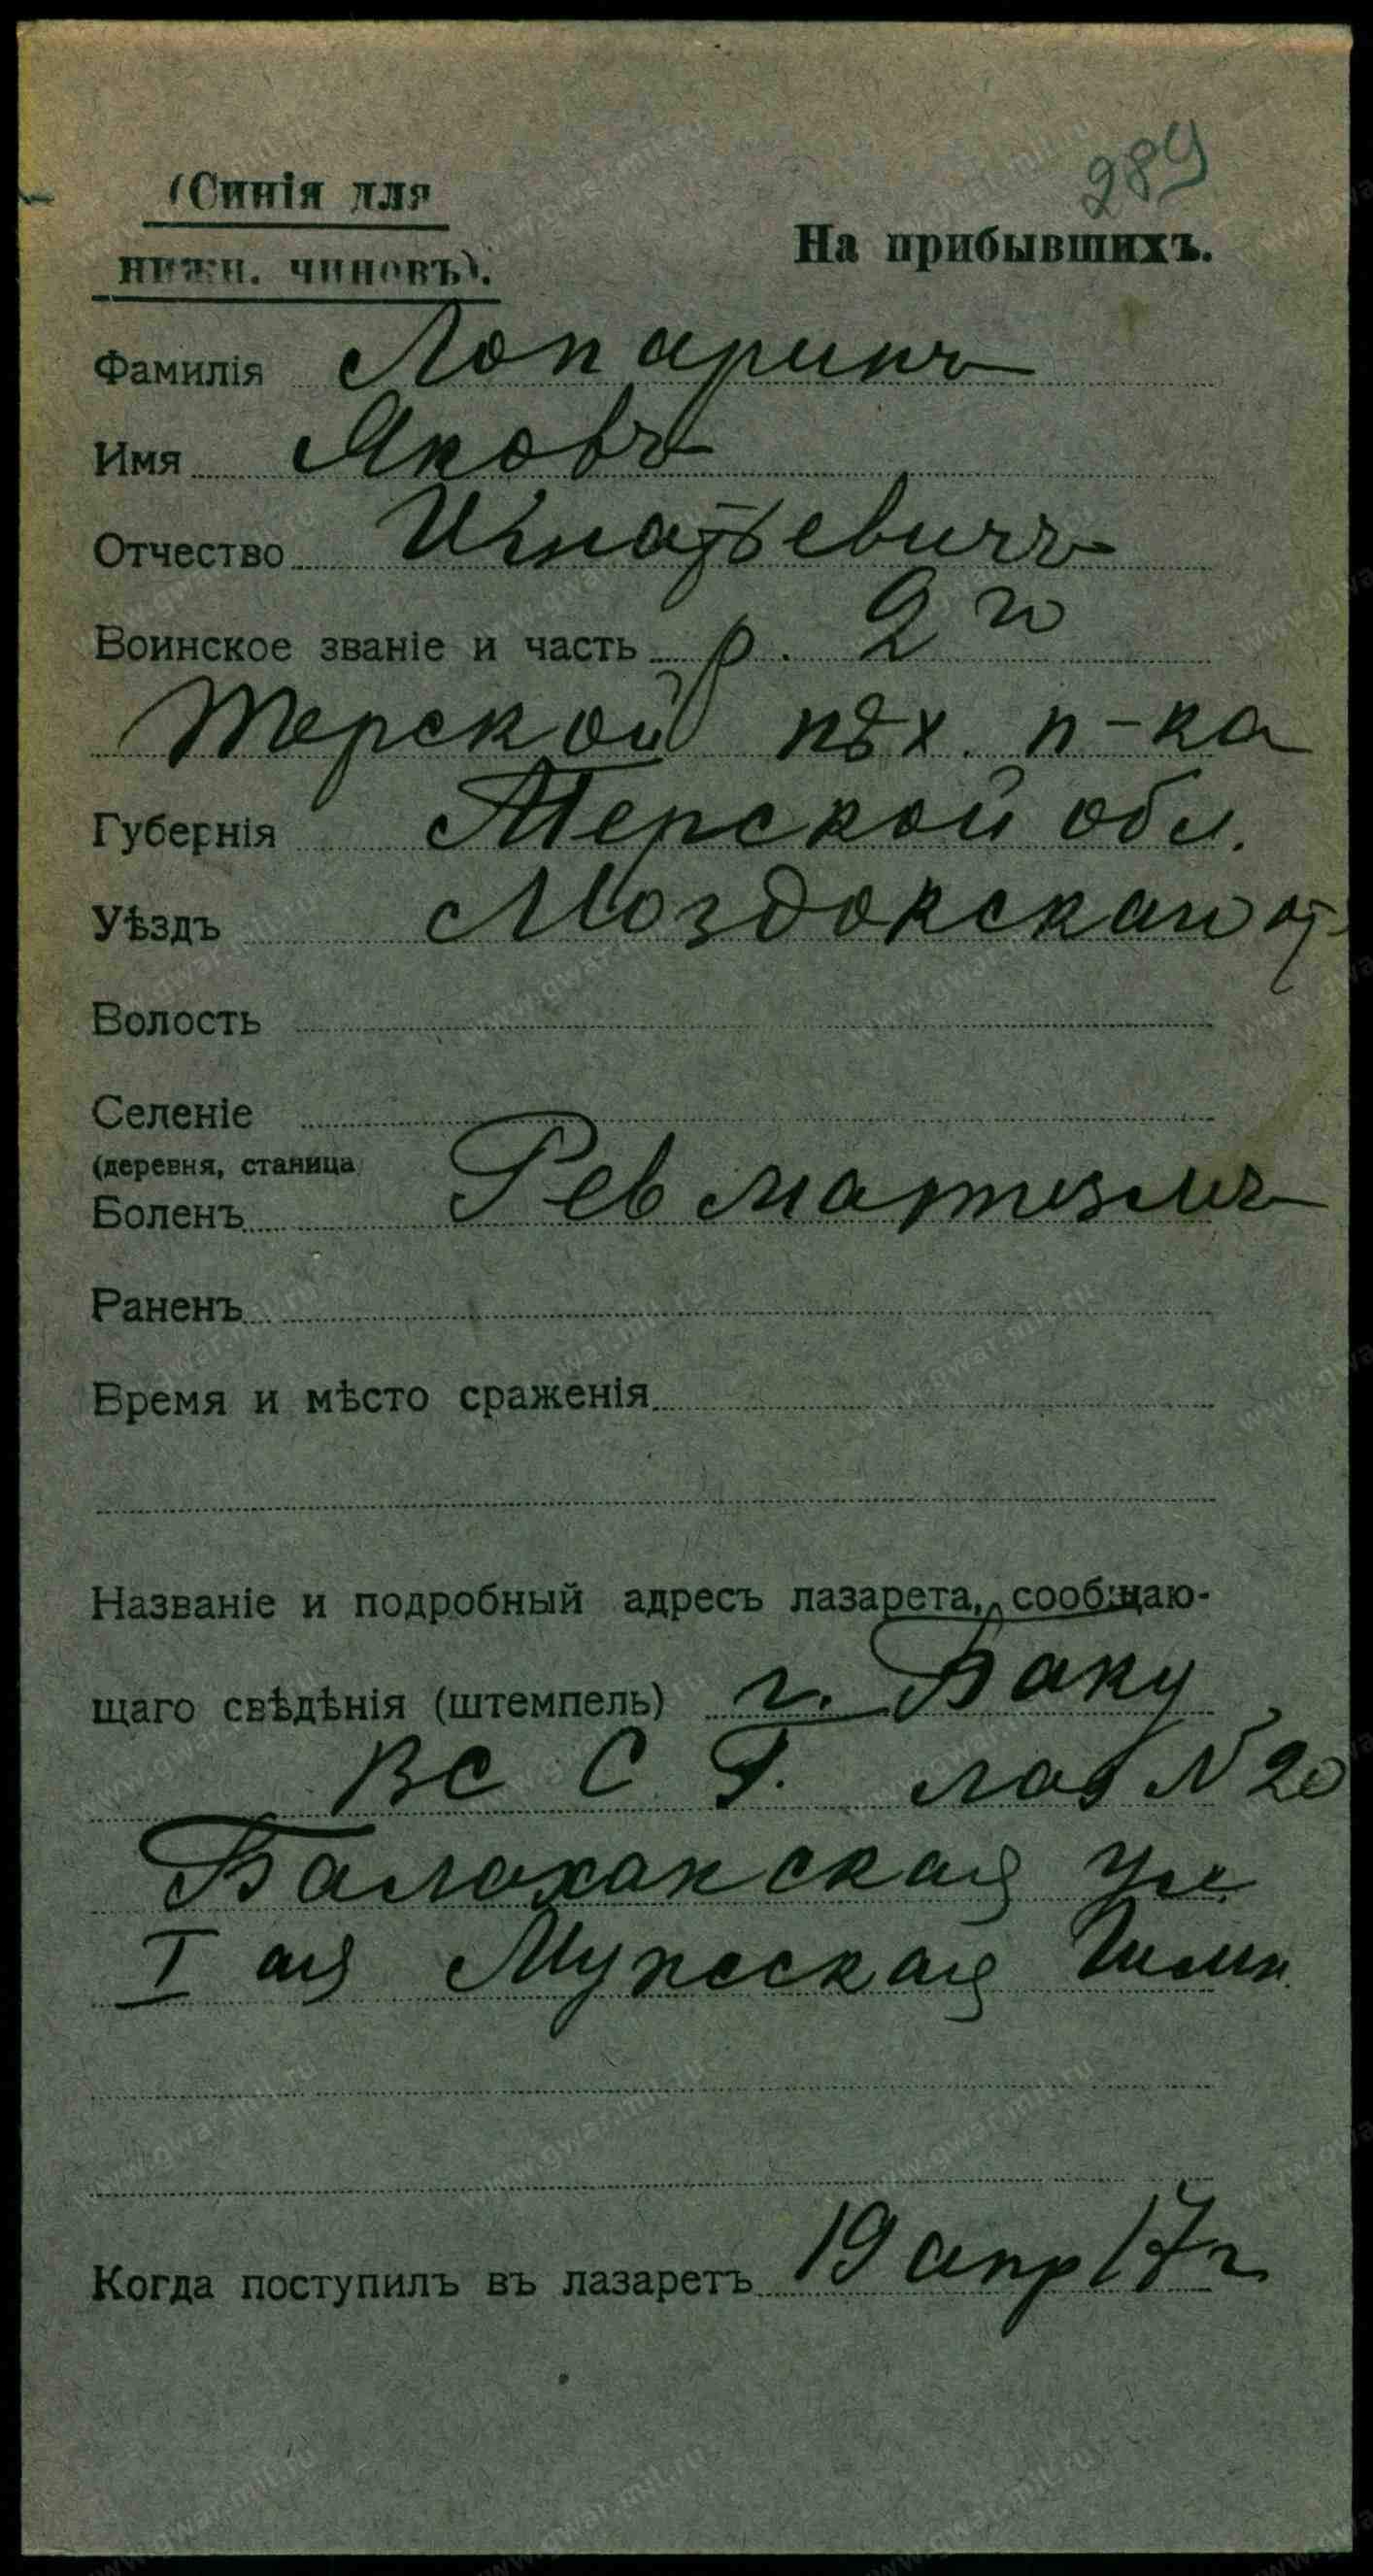 289
(Синія для
нижн. чиновъ).
На прибывшихъ.
Фамилія Лопаринъ
Имя Яковъ
Отчество Игнатьевичъ
Воинское званіе и часть р. 2го
Терской пѣх. п-ка
Губернія Терской обл.
Уѣздъ Моздокскаго от
Волость
Селеніе
(деревня, станица)
Боленъ Ревматизмъ
Раненъ
Время и мѣсто сраженія
Названіе и подробный адресъ лазарета, сообщаю-
щаго свѣдѣнія (штемпель) г. Баку
ВС С Г. лаз N 20
Балаханская ул.
I ая Мужская Гимн.
Когда поступилъ въ лазаретъ 19 апр 17 г
www.gwar.mil.ru